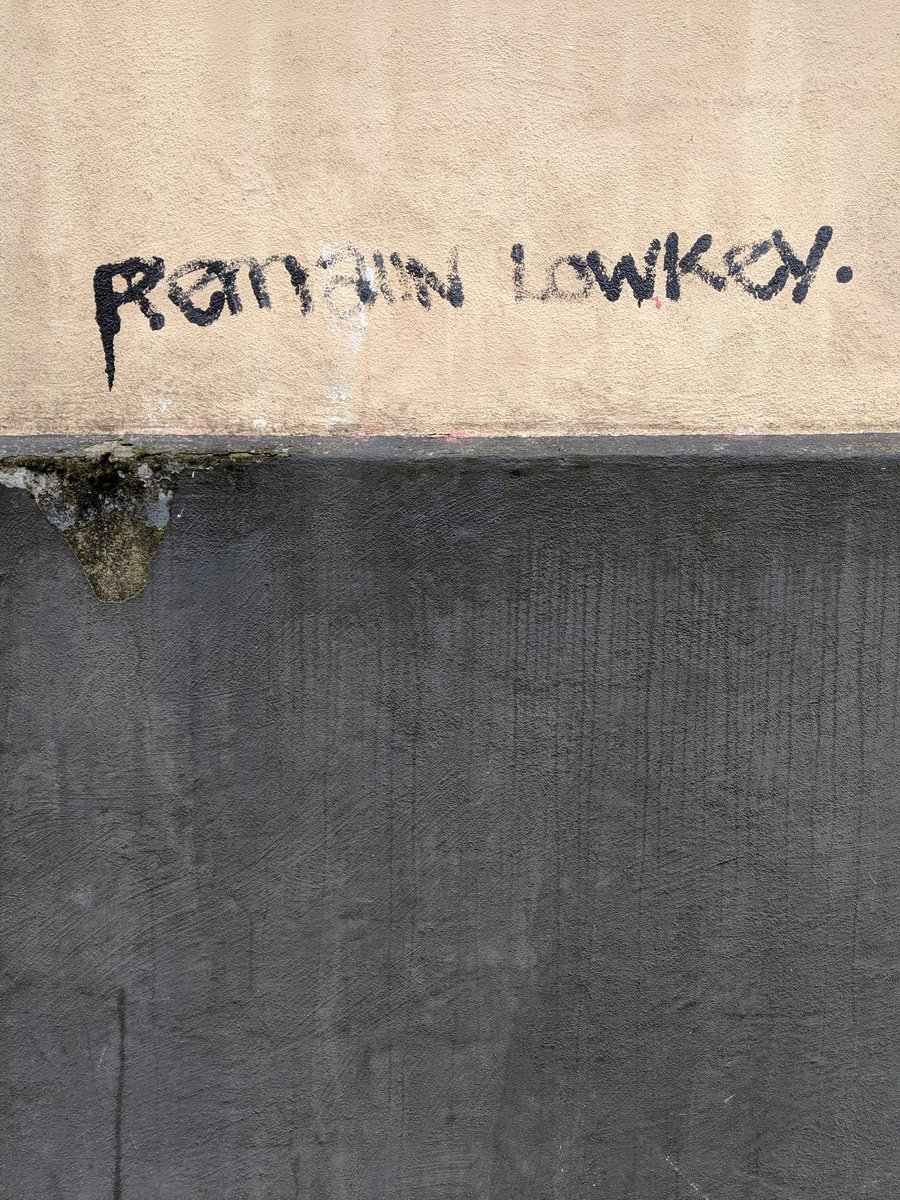 Remain Lowkey.